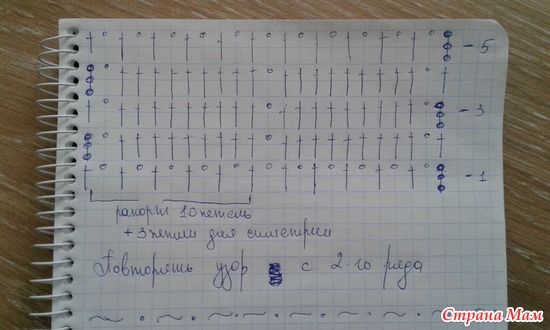 - 5
- 3
- 1
рапорты 10 петель
+ 3 петли для симетрии
Повторять узор с 2-го ряда
Страна Мам